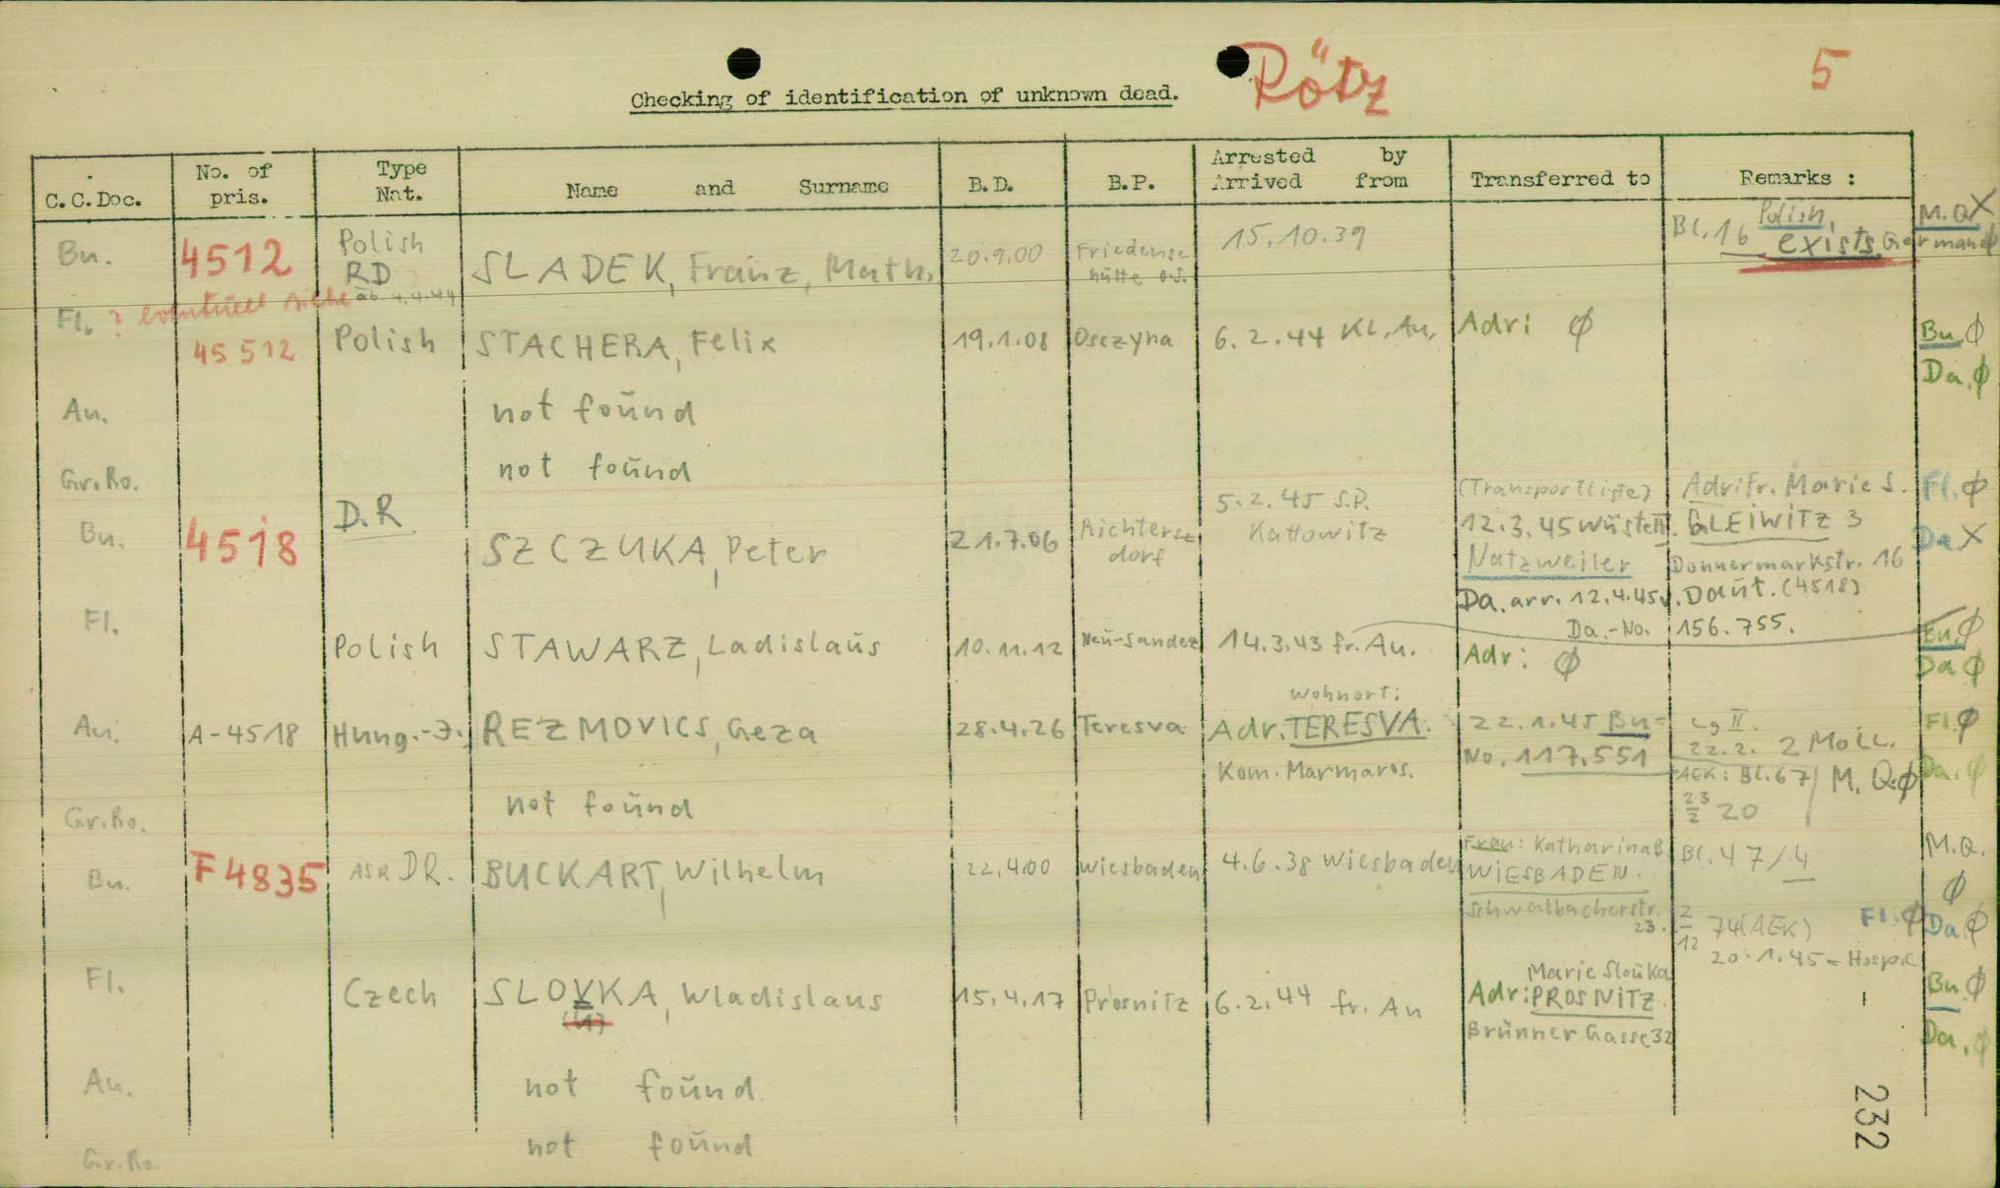 Rötz
5
Checking of identification of unknown dead.
C.C.Doc.
No. of pris.
Type Nat.
Name and Surname
B.D.
B.P.
Arrested by
Arrived from
Transferred to
Remarks :
Bu. 4512 Polish RD ab. 4.4.44 SLADEK, Franz, Math. 20.9.00 Friedens hütte O.S. 15.10.39 Bl.16 Polish exists German Ø M.Q X
Fl. ? eventuell siehe
45512 Polish STACHERA, Felix 19.1.08 Osczyna 6.2.44 KL. Au. Adr: Ø Bu Ø
Da. Ø
Au. not foünd
Gr.Ro. not foünd
Bu. 4518 D.R SZCZUKA, Peter 21.7.06 Richtersdorf 5.2.45 S.P. Kattowitz (Transportliste) Adr: Fr. Marie S. Fl. Ø
12.3.45 Wüste Natzweiler GLEIWITZ 3 Donnermarkstr. 16 Da X
Da. arr. 12.4.45 v. Daüt. (4518)
Da.-No. 156.755.
Fl. Polish STAWARZ, Ladislaüs 10.11.12 Neü-Sandez 14.3.43 fr. Au. Adr: Ø Bu. Ø
Da Ø
Au. A-4518 Hung.-J. REZMOVICS, Geza 28.4.26 Teresva wohnort: Adr. TERESVA. 22.1.45 Bu= Lg II. Fl Ø
Kom. Marmaros. No. 117.551 22.2. 2 Moll. Da. Ø
AEK: Bl. 67/ M.Q. Ø
23/2 20
Gr.Ro. not foünd
Bu. F 4835 ASR DR. BUCKART, Wilhelm 22.4.00 Wiesbaden 4.6.38 Wiesbaden Frau: Katharina B Bl. 47/4 M.Q. Ø
WIESBADEN.
Schwalbacherstr. 23. 2/12 74 (AEK) Fl. Ø Da. Ø
20.1.45 = Hospit.
Fl. Czech SLOVKA, Wladislaus 15.4.17 Prosnitz 6.2.44 fr. Au Marie Sloüka - Bu. Ø
(U) Adr: PROSNITZ. Da. Ø
Brünner Gasse 32
Au. not foünd.
Gr.Ro. not foünd
232